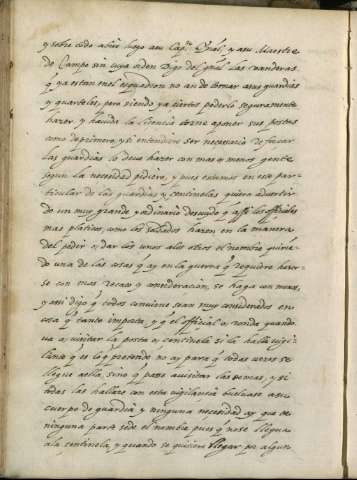 y sobre todo abise luego a su Cap.n Gñal, y a su Maestre
de Campo sin cuya orden Digo del gñal las vanderas
q̃ ya estan en el esquadron no an de tornar a sus guardias
y quarteles, pero siendo ya ciertos poderlo seguramente
hazer, y havida la licencia torne a poner sus postas
como de primero, y si entendiere ser necesario reforzar
las guardias lo deva hazer con mas o menos gente
segun la necesidad pidiere, y pues estamos en este par-
ticular de las guardias y centinelas quiero advertir
de un muy grande y ordinario descuydo q̃ assi los officiales
mas platicos, como los soldados hazen en la manera
del pedir o dar los unos a los otros el nombre quien-
do una de las cosas q̃ ay en la guerra q̃ requiere hazer-
se con mas recato y consideracion, se haga con menos,
y assi digo q̃ todos conviene sean muy considerados en
cosa q̃ tanto importa, y q̃ el official o ronda quando
va a visitar la posta o centinela si la halla vigi-
lante q̃ es lo q̃ pretende no ay para q̃ todas vezes se
llegue a ella, sino q̃ passe a visitar las demas, y si
todas las hallare con esta vigilancia buelvase a su
cuerpo de guardia y ninguna necesidad ay que de
ninguna parte se de el nombre pues q̃ no se llegua
a la centinela, y quando se quisiere llegar por algun